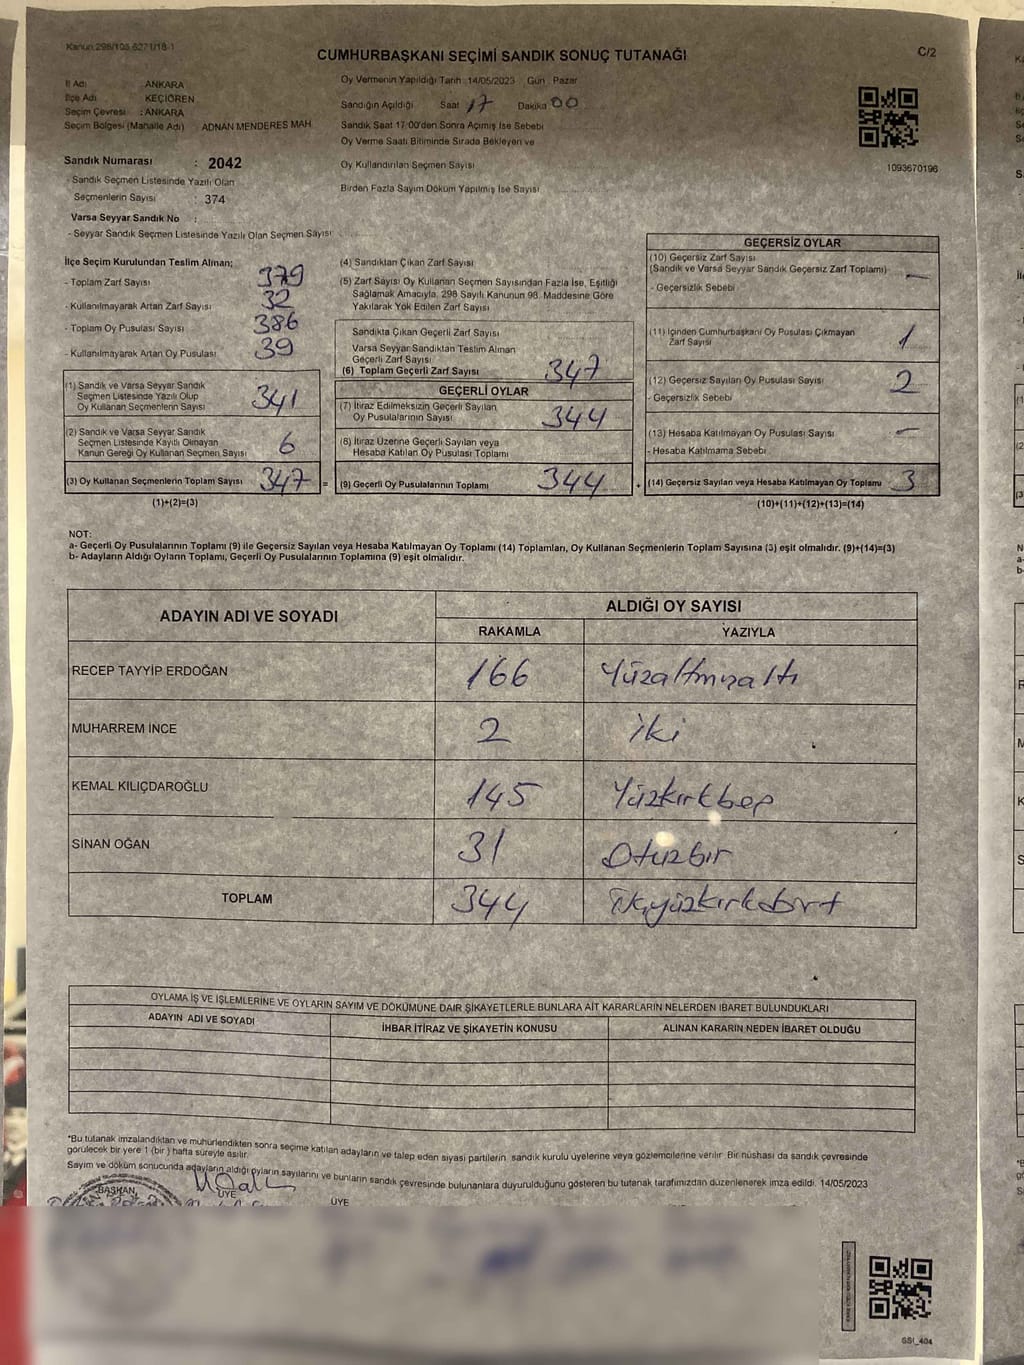 Kanun 298/105,6271/18-1
CUMHURBAŞKANI SEÇİMİ SANDIK SONUÇ TUTANAĞI
C/2
İl Adı : ANKARA
İlçe Adı : KEÇİÖREN
Seçim Çevresi : ANKARA
Seçim Bölgesi (Mahalle Adı) ADNAN MENDERES MAH
Oy Vermenin Yapıldığı Tarih :14/05/2023 Gün : Pazar
Sandığın Açıldığı Saat 17 Dakika 00
Sandık Saat 17:00'den Sonra Açılmış İse Sebebi
Oy Verme Saati Bitiminde Sırada Bekleyen ve
Oy Kullandırılan Seçmen Sayısı
Birden Fazla Sayım Döküm Yapılmış İse Sayısı
1093670196
Sandık Numarası : 2042
- Sandık Seçmen Listesinde Yazılı Olan
Seçmenlerin Sayısı : 374
Varsa Seyyar Sandık No :
- Seyyar Sandık Seçmen Listesinde Yazılı Olan Seçmen Sayısı
İlçe Seçim Kurulundan Teslim Alınan;
- Toplam Zarf Sayısı 379
- Kullanılmayarak Artan Zarf Sayısı 32
- Toplam Oy Pusulası Sayısı 386
- Kullanılmayarak Artan Oy Pusulası 39
(1) Sandık ve Varsa Seyyar Sandık
Seçmen Listesinde Yazılı Olup
Oy Kullanan Seçmenlerin Sayısı 341
(2) Sandık ve Varsa Seyyar Sandık
Seçmen Listesinde Kayıtlı Olmayan
Kanun Gereği Oy Kullanan Seçmen Sayısı 6
(3) Oy Kullanan Seçmenlerin Toplam Sayısı 347 =
(1)+(2)=(3)
(4) Sandıktan Çıkan Zarf Sayısı
(5) Zarf Sayısı Oy Kullanan Seçmen Sayısından Fazla İse, Eşitliği
Sağlamak Amacıyla, 298 Sayılı Kanunun 98. Maddesine Göre
Yakılarak Yok Edilen Zarf Sayısı
Sandıkta Çıkan Geçerli Zarf Sayısı
Varsa Seyyar Sandıktan Teslim Alınan
Geçerli Zarf Sayısı
(6) Toplam Geçerli Zarf Sayısı 347
GEÇERLİ OYLAR
(7) İtiraz Edilmeksizin Geçerli Sayılan
Oy Pusulalarının Sayısı 344
(8) İtiraz Üzerine Geçerli Sayılan veya
Hesaba Katılan Oy Pusulası Toplamı
(9) Geçerli Oy Pusulalarının Toplamı 344
GEÇERSİZ OYLAR
(10) Geçersiz Zarf Sayısı
(Sandık ve Varsa Seyyar Sandık Geçersiz Zarf Toplamı) —
- Geçersizlik Sebebi
(11) İçinden Cumhurbaşkanı Oy Pusulası Çıkmayan
Zarf Sayısı 1
(12) Geçersiz Sayılan Oy Pusulası Sayısı 2
- Geçersizlik Sebebi
(13) Hesaba Katılmayan Oy Pusulası Sayısı —
- Hesaba Katılmama Sebebi
(14) Geçersiz Sayılan veya Hesaba Katılmayan Oy Toplamı 3
(10)+(11)+(12)+(13)=(14)
NOT:
a- Geçerli Oy Pusulalarının Toplamı (9) ile Geçersiz Sayılan veya Hesaba Katılmayan Oy Toplamı (14) Toplamları, Oy Kullanan Seçmenlerin Toplam Sayısına (3) eşit olmalıdır. (9)+(14)=(3)
b- Adayların Aldığı Oyların Toplamı, Geçerli Oy Pusulalarının Toplamına (9) eşit olmalıdır.
ADAYIN ADI VE SOYADI
ALDIĞI OY SAYISI
RAKAMLA YAZIYLA
RECEP TAYYİP ERDOĞAN 166 Yüzaltmışaltı
MUHARREM İNCE 2 İki
KEMAL KILIÇDAROĞLU 145 Yüzkırkbeş
SİNAN OĞAN 31 Otuzbir
TOPLAM 344
OYLAMA İŞ VE İŞLEMLERİNE VE OYLARIN SAYIM VE DÖKÜMÜNE DAİR ŞİKAYETLERLE BUNLARA AİT KARARLARIN NELERDEN İBARET BULUNDUKLARI
ADAYIN ADI VE SOYADI İHBAR İTİRAZ VE ŞİKAYETİN KONUSU ALINAN KARARIN NEDEN İBARET OLDUĞU
*Bu tutanak imzalandıktan ve mühürlendikten sonra seçime katılan adayların ve talep eden siyasi partilerin sandık kurulu üyelerine veya gözlemcilerine verilir. Bir nüshası da sandık çevresinde
görülecek bir yere 1 (bir) hafta süreyle asılır.
Sayım ve döküm sonucunda adayların aldığı oyların sayılarını ve bunların sandık çevresinde bulunanlara duyurulduğunu gösteren bu tutanak tarafımızdan düzenlenerek imza edildi. 14/05/2023
BAŞKAN
ÜYE
ÜYE
GSI_404